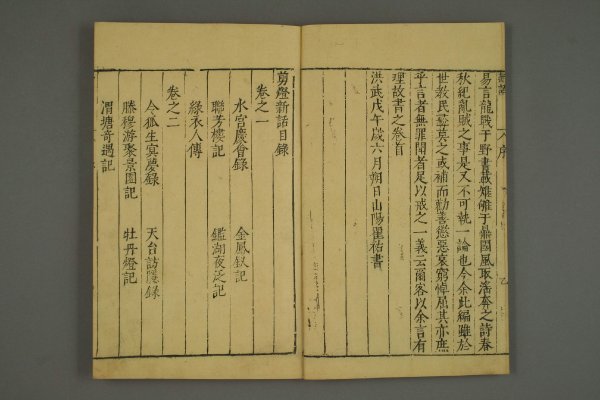 易言龍戰于野書載雉雊于鼎國風取淫奔之詩春
秋紀亂賊之事是又不可執一論也今余此編雖於
世教民彝莫之或補而勸善懲惡哀窮悼屈其亦庶
乎言者無罪聞者足以戒之一義云爾客以余言有
理故書之卷首
洪武戊午歲六月朔日山陽瞿祐書
剪燈新話目錄
卷之一
水宮慶會錄 金鳳釵記
聯芳樓記 鑑湖夜泛記
綠衣人傳
卷之二
令狐生冥夢錄 天台訪隱錄
滕穆游聚景園記 牡丹燈記
渭塘奇遇記